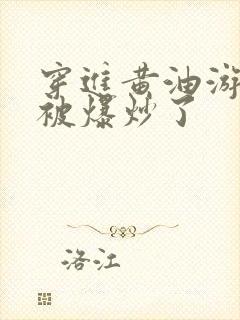 穿进黄油游
被爆炒了
洛江